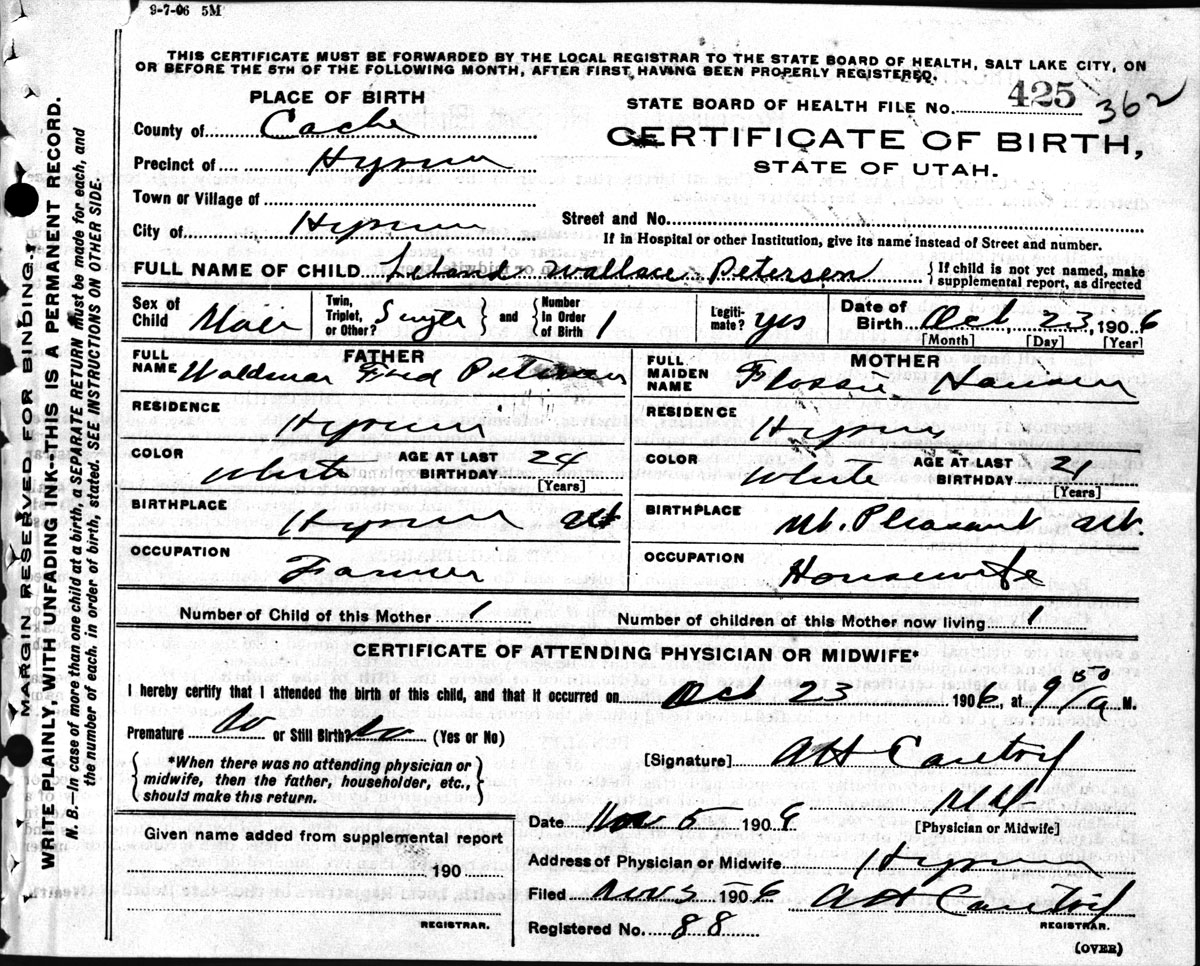 9-7-06 5M
THIS CERTIFICATE MUST BE FORWARDED BY THE LOCAL REGISTRAR TO THE STATE BOARD OF HEALTH, SALT LAKE CITY, ON
OR BEFORE THE 5TH OF THE FOLLOWING MONTH, AFTER FIRST HAVING BEEN PROPERLY REGISTERED.
PLACE OF BIRTH
STATE BOARD OF HEALTH FILE No. 425 362
County of Cache
CERTIFICATE OF BIRTH,
STATE OF UTAH.
Precinct of Hyrum
Town or Village of
City of Hyrum
Street and No.
If in Hospital or other Institution, give its name instead of Street and number.
FULL NAME OF CHILD Leland Wallace Petersen { If child is not yet named, make supplemental report, as directed
Sex of Child Male Twin, Triplet, or Other? Single } and { Number in Order of Birth 1 Legitimate? Yes Date of Birth Oct 23, 1906
[Month] [Day] [Year]
FATHER
FULL NAME Waldmar Fred Petersen
RESIDENCE
Hyrum
COLOR White AGE AT LAST BIRTHDAY 24
[Years]
BIRTHPLACE
Hyrum Ut
OCCUPATION
Farmer
MOTHER
FULL MAIDEN NAME Flossie Hansen
RESIDENCE
Hyrum
COLOR White AGE AT LAST BIRTHDAY 21
[Years]
BIRTHPLACE
Mt. Pleasant Ut.
OCCUPATION
Housewife
Number of Child of this Mother 1 Number of children of this Mother now living 1
CERTIFICATE OF ATTENDING PHYSICIAN OR MIDWIFE*
I hereby certify that I attended the birth of this child, and that it occurred on Oct 23 1906, at 9 50 A M.
Premature No or Still Birth? No (Yes or No)
{ *When there was no attending physician or midwife, then the father, householder, etc., should make this return. }
[Signature] AH Cantril
MD
[Physician or Midwife]
Date Nov 5 1906
Given name added from supplemental report
190
REGISTRAR.
Address of Physician or Midwife. Hyrum
Filed Nov 5 1906 AH Cantril
REGISTRAR.
Registered No. 88
(OVER)
MARGIN RESERVED FOR BINDING.
WRITE PLAINLY, WITH UNFADING INK—THIS IS A PERMANENT RECORD.
N. B.—In case of more than one child at a birth, a SEPARATE RETURN must be made for each, and
the number of each. in order of birth, stated. SEE INSTRUCTIONS ON OTHER SIDE.